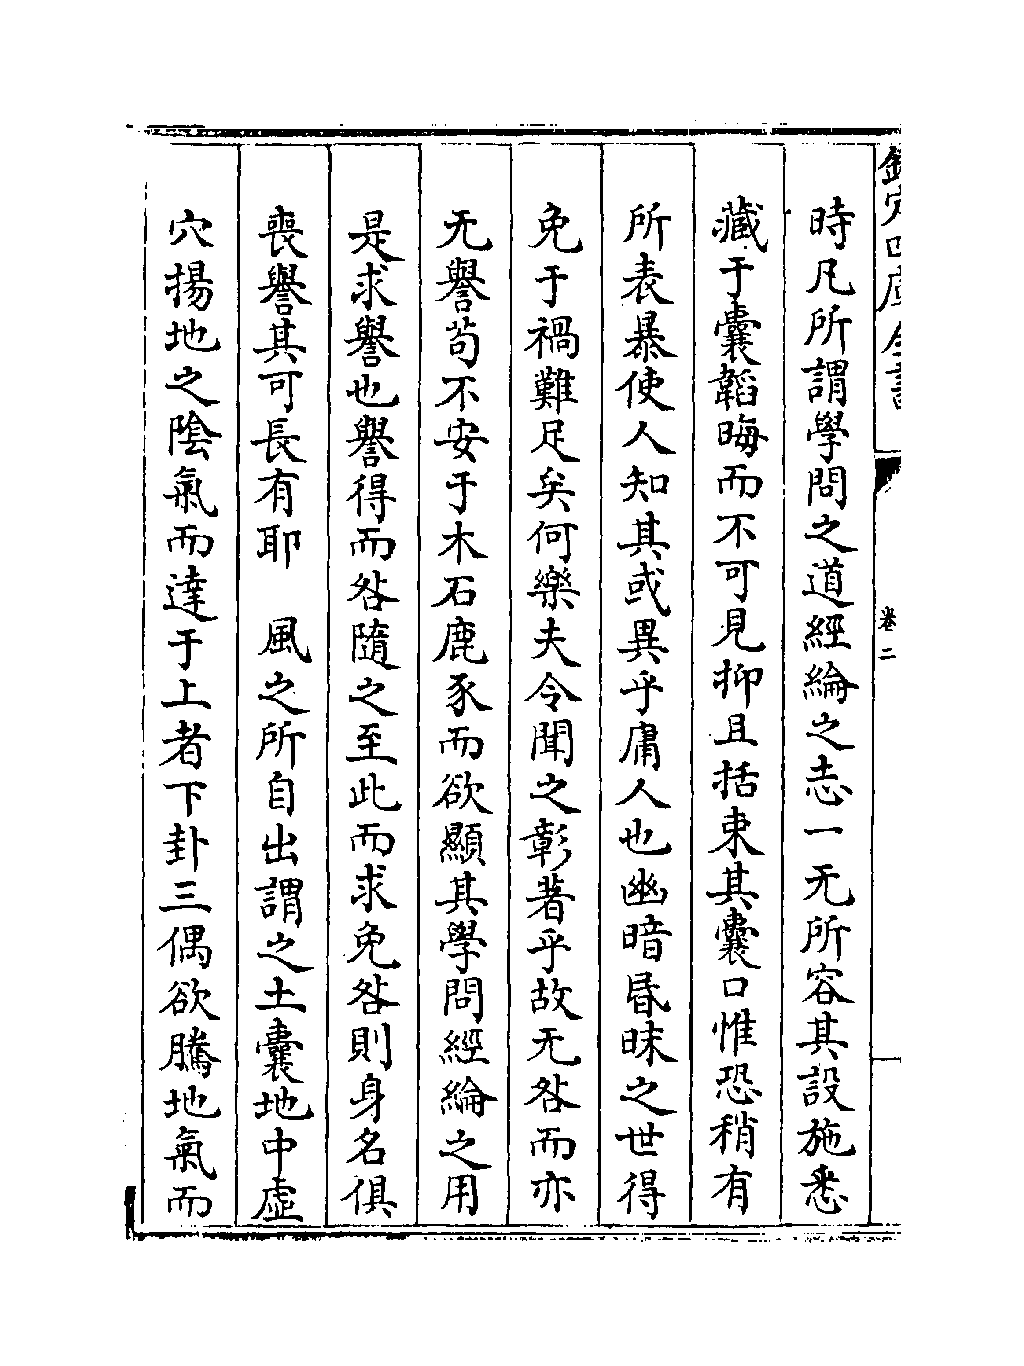 欽定四庫全書
卷二
時凡所謂學問之道經綸之志一无所容其設施悉
藏于囊韜晦而不可見抑且括束其囊口惟恐稍有
所表暴使人知其或異乎庸人也幽暗昬昧之世得
免于禍難足矣何樂夫令聞之彰著乎故无咎而亦
无譽苟不安于木石鹿豕而欲顯其學問經綸之用
是求譽也譽得而咎隨之至此而求免咎則身名俱
喪譽其可長有耶　風之所自出謂之土囊地中虛
穴揚地之陰氣而達于上者下卦三偶欲騰地氣而